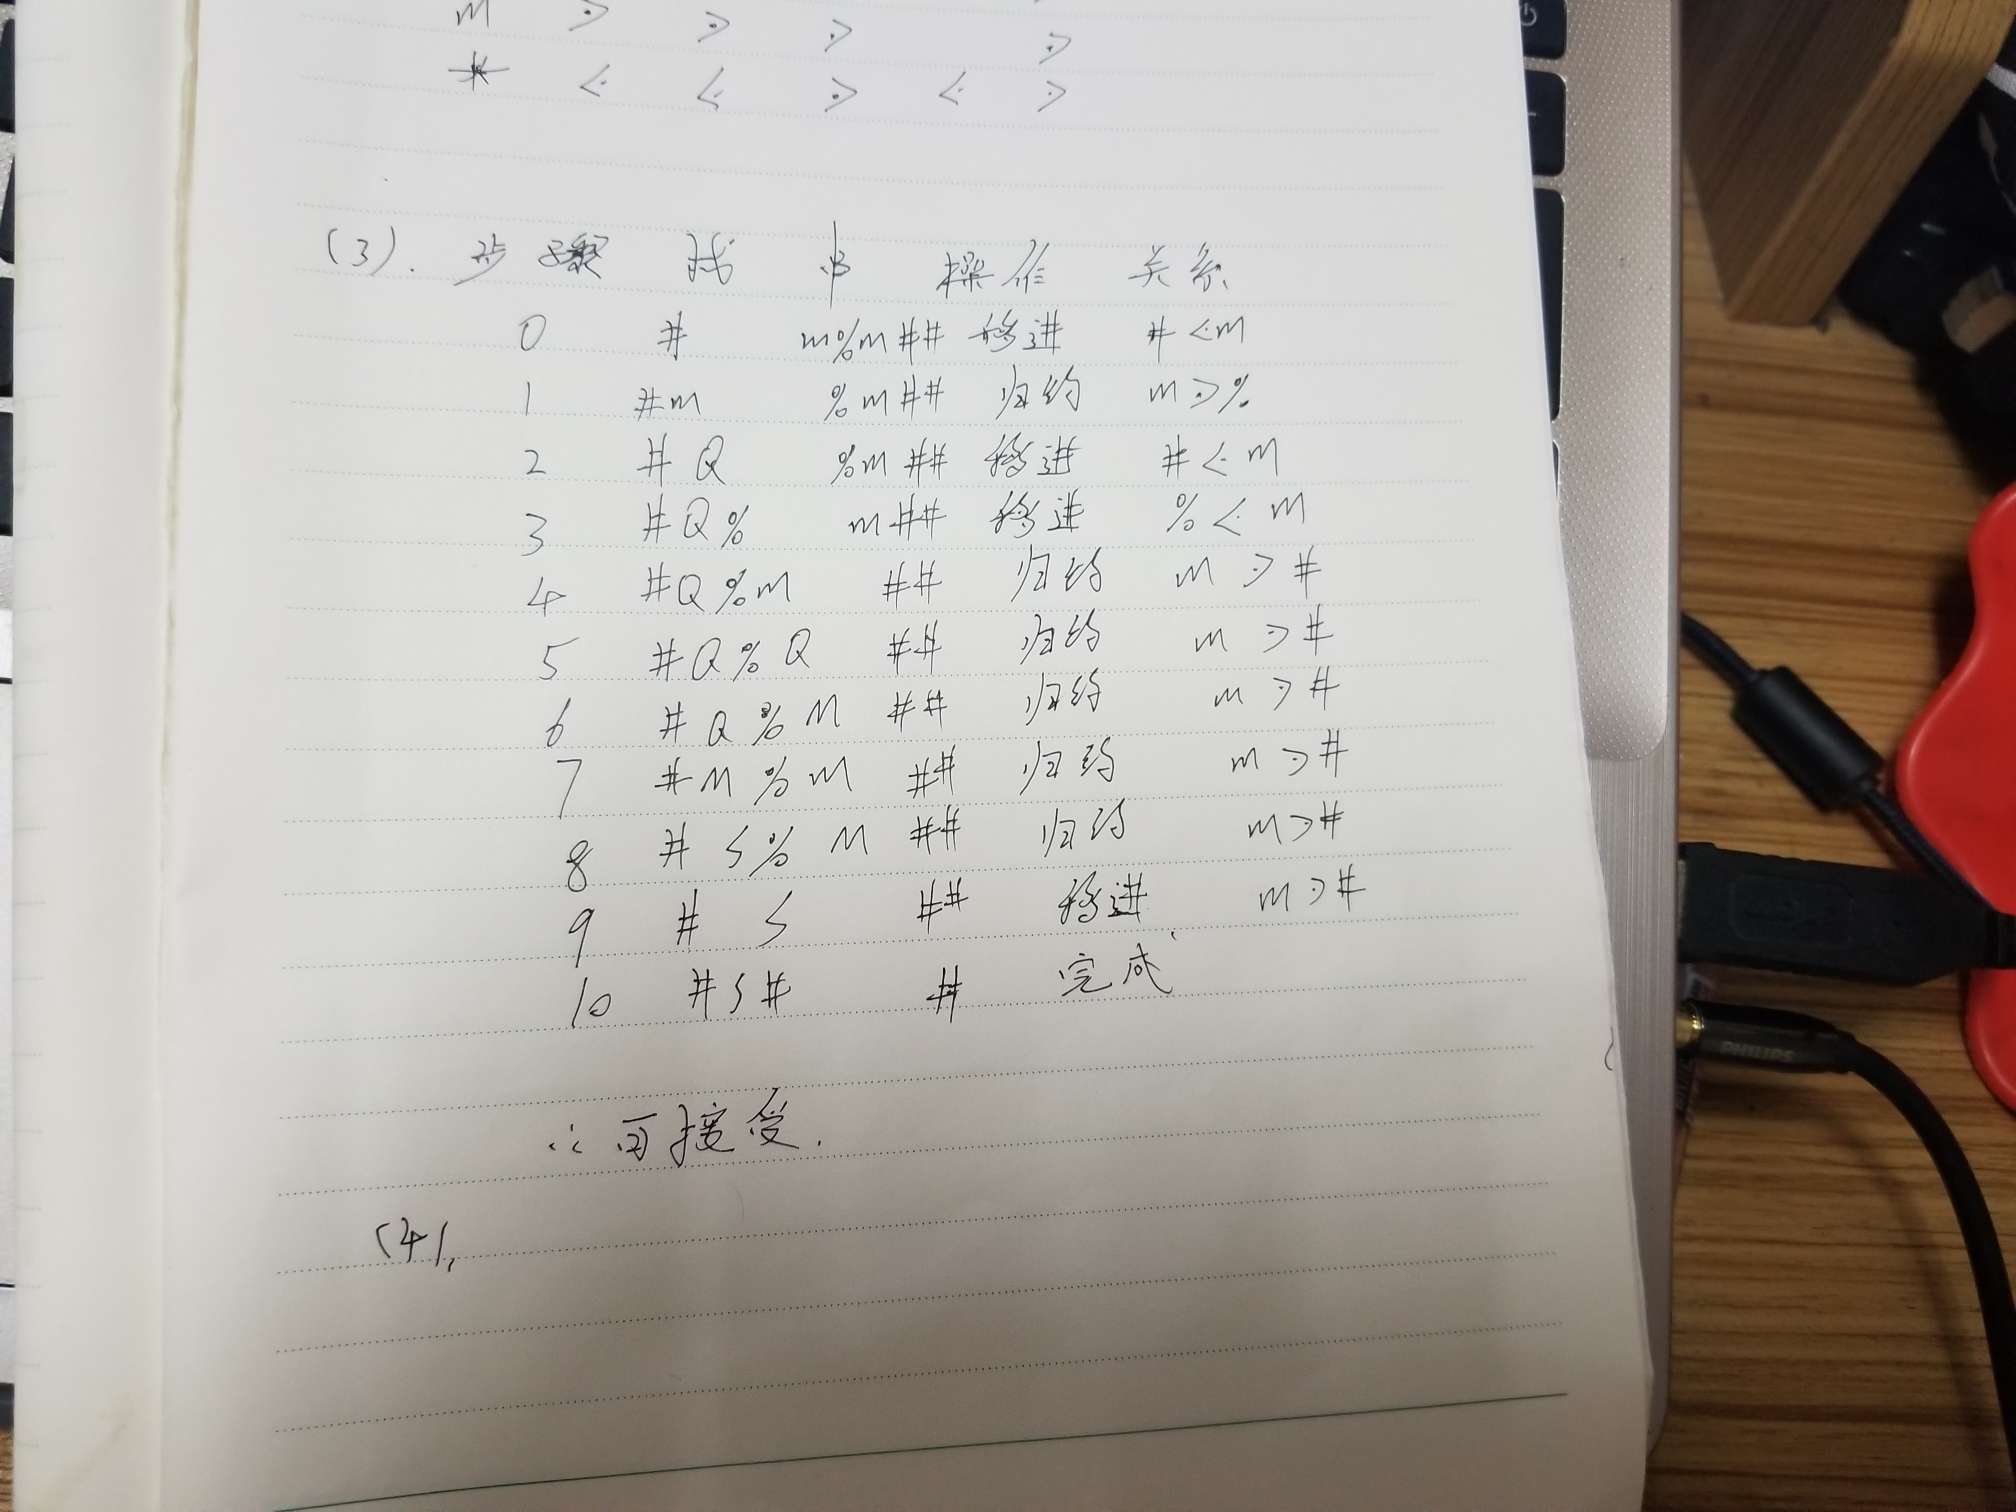 m ⋗ ⋗ ⋗ ⋗
* ⋖ ⋖ ⋗ ⋖ ⋗
(3). 步骤 栈 串 操作 关系
0 # m%m## 移进 #⋖m
1 #m %m## 归约 m⋗%
2 #Q %m## 移进 #⋖m
3 #Q% m## 移进 %⋖m
4 #Q%m ## 归约 m⋗#
5 #Q%Q ## 归约 m⋗#
6 #Q%M ## 归约 m⋗#
7 #M%M ## 归约 m⋗#
8 #S%M ## 归约 m⋗#
9 #S ## 移进 m⋗#
10 #S# # 完成
∴可接受.
(4),
PHILIPS